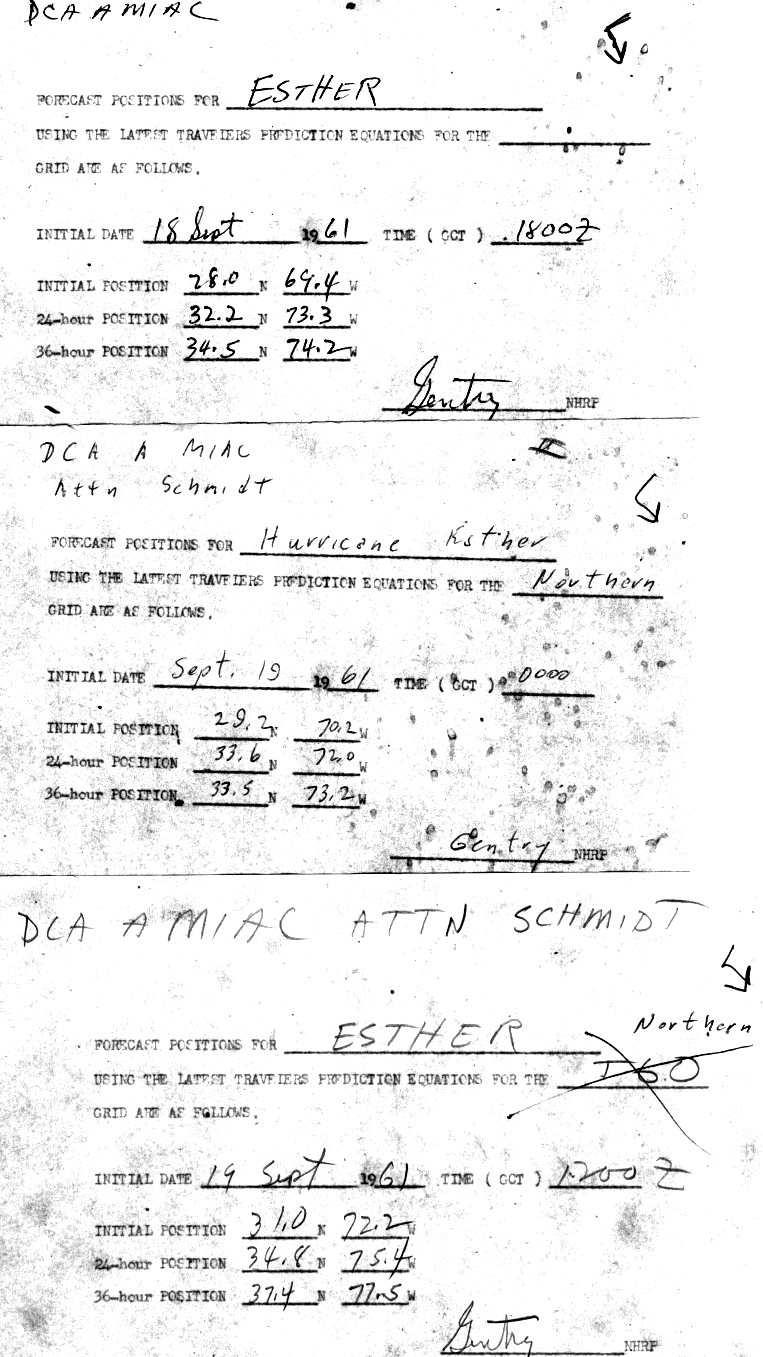 DCA A MIAC
FORECAST POSITIONS FOR ESTHER
USING THE LATEST TRAVELERS PREDICTION EQUATIONS FOR THE
GRID ARE AS FOLLOWS.
INITIAL DATE 18 Sept 1961 TIME ( GCT ) 1800Z
INITIAL POSITION 28.0 N 69.4 W
24-hour POSITION 32.2 N 73.3 W
36-hour POSITION 34.5 N 74.2 W
Gentry NHRP
DCA A MIAC
Attn Schmidt
FORECAST POSITIONS FOR Hurricane Esther
USING THE LATEST TRAVELERS PREDICTION EQUATIONS FOR THE Northern
GRID ARE AS FOLLOWS.
INITIAL DATE Sept. 19 1961 TIME ( GCT ) 0000
INITIAL POSITION 29.2 N 70.2 W
24-hour POSITION 33.6 N 72.0 W
36-hour POSITION 33.5 N 73.2 W
Gentry NHRP
DCA A MIAC ATTN SCHMIDT
Northern
FORECAST POSITIONS FOR ESTHER
USING THE LATEST TRAVELERS PREDICTION EQUATIONS FOR THE
GRID ARE AS FOLLOWS.
INITIAL DATE 19 Sept 1961 TIME ( GCT ) 1200 Z
INITIAL POSITION 31.0 N 72.2 W
24-hour POSITION 34.8 N 75.4 W
36-hour POSITION 37.4 N 77.5 W
Gentry NHRP